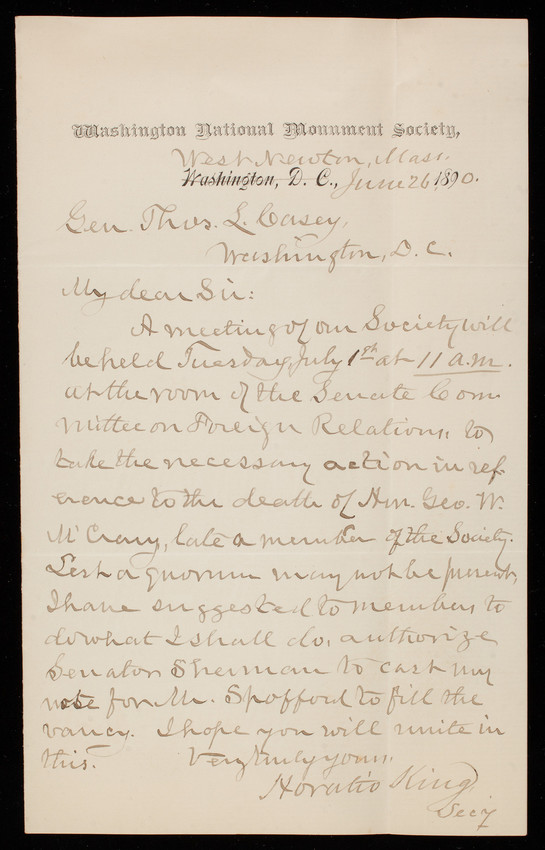 Washington National Monument Society,
West Newton, Mass.
Washington, D. C., June 26, 1890.
Gen. Thos. L. Casey,
Washington, D.C.
My dear Sir:
A meeting of our Society will
be held Tuesday, July 1st at 11 a.m.
at the room of the Senate Com-
mittee on Foreign Relations, to
take the necessary action in ref-
erence to the death of Hon. Geo. W.
McCrary, late a member of the Society.
Lest a quorum may not be present,
I have suggested to members to
do what I shall do, authorize
Senator Sherman to cast my
vote for Mr. Spofford to fill the
vancy. I hope you will unite in
this. Very truly yours,
Horatio King
Sec'y